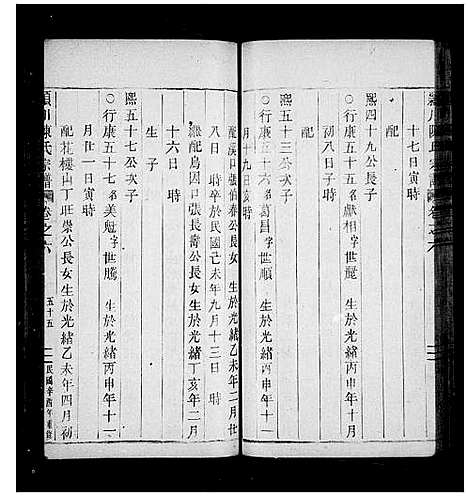 潁川陳氏宗譜 卷之六
十七日寅時
熙四十九公長子
○行康五十五名獻相字世寵 生於光緒丙申年十一
月初八日子時
配
熙五十三公次子
○行康五十六名葛昌字世順 生於光緒丙申年十一
月十九日亥時
配溪口張伯春公長女 生於光緒乙未年二月
八日 時卒於民國己未年九月十三日 時
繼配烏因口張長壽公長女生於光緒丁亥年二月
十六日 時
生子
熙五十七公次子
○行康五十七名美魁字世騰 生於光緒丙申年十一
月廿一日寅時
配花樓山丁旺崇公長女生於光緒乙未年四月初
潁川陳氏宗譜 卷之六
五十五
民國辛酉年重修